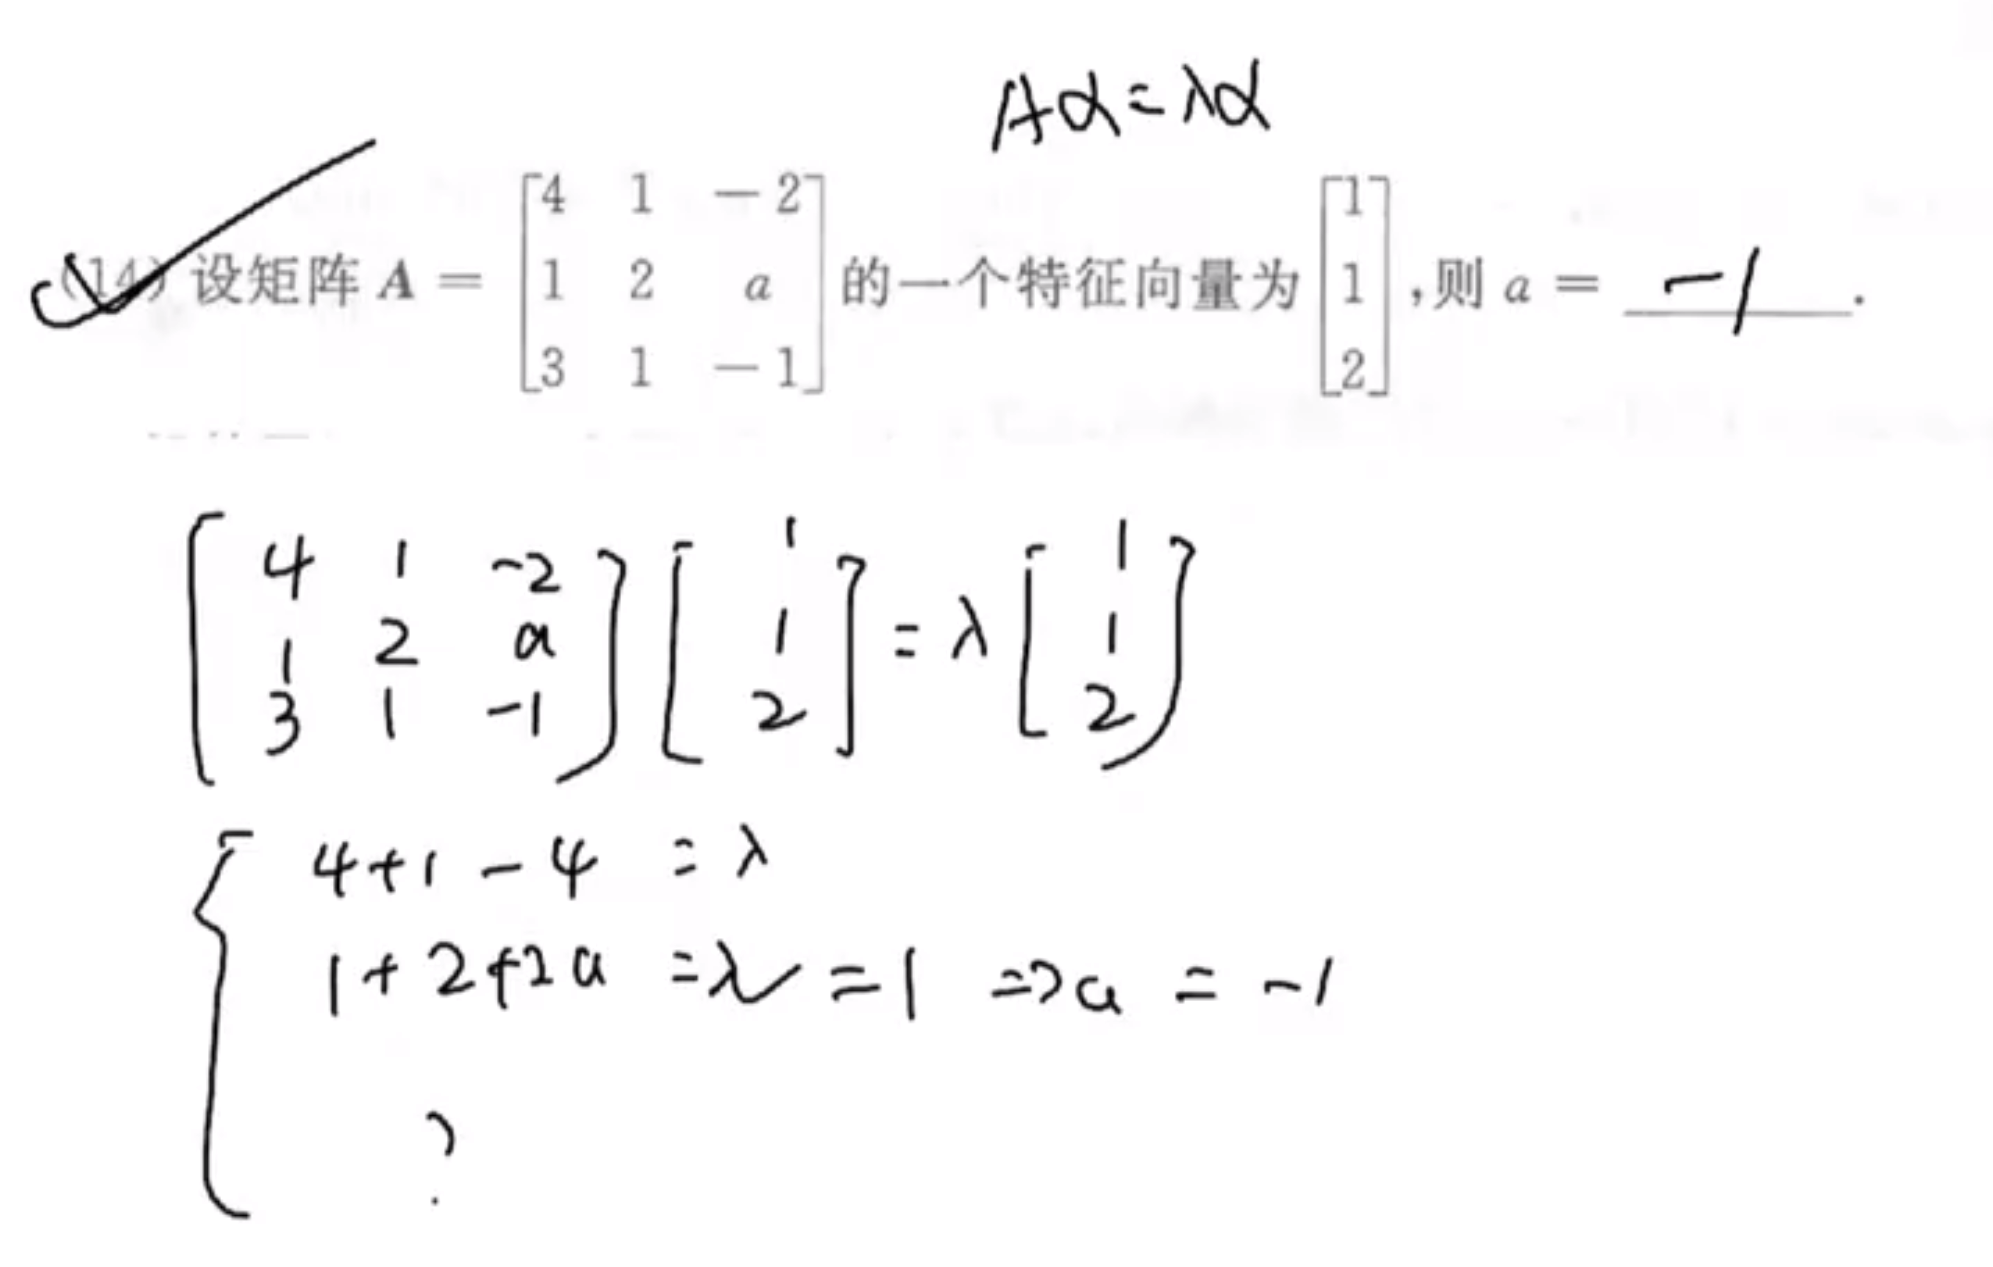 Aα=λα
(14) 设矩阵 A = [4 1 -2; 1 2 a; 3 1 -1] 的一个特征向量为 [1; 1; 2], 则 a = -1 .
[4 1 -2; 1 2 a; 3 1 -1] [1; 1; 2] = λ [1; 1; 2]
4+1-4 = λ
1+2+2a = λ = 1 ⇒ a = -1
?